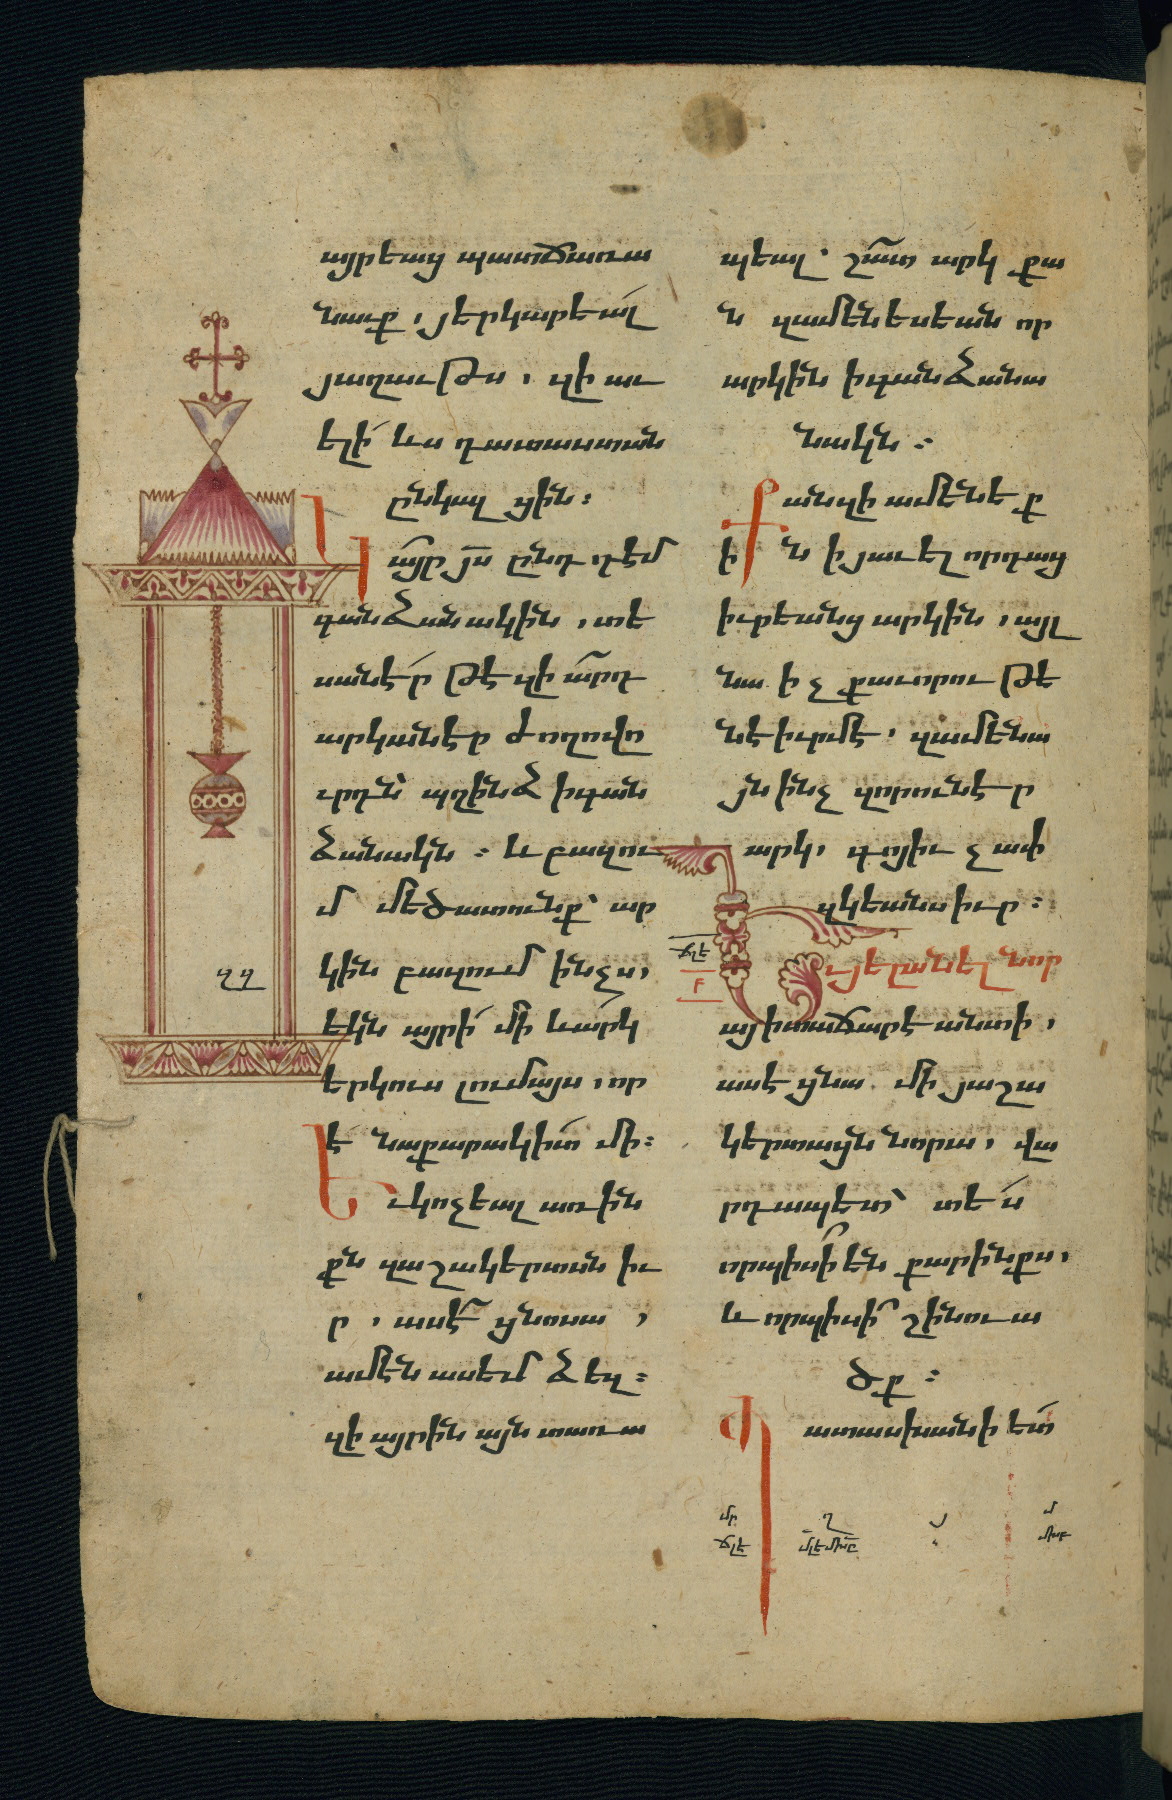 այրեաց պատճառա
նաւք, յերկարեալ
յաղաւթս, զի առ
ելի ևս դատաստան
ընկալցին։
Նայր յս ընդդէմ
գանձանակին, տե
սանէր թէ զիարդ
արկանէր ժողովո
ւրդն՝ պղինձ ի գան
ձանակն։ և բազու
մ մեծատունք՝ ար
կին բազում ինչս,
եկն այրի մի և արկ
երկուս լումայս, որ
է նաքարակիտ մի։
Եւ կոչեալ առ ին
քն զաշակերտսն իւ
ր, ասէ ցնոսա,
ամէն ասեմ ձեզ։
զի այրին այն տառա
պեալ՝ շատ արկ քա
ն զամենեսեան որ
արկին ի գանձանա
նակն։
Քանզի ամենեք
ին ի յաւելորդաց
իւրեանց արկին, այլ
նա ի չքաւորութե
նէ իւրմէ, զամենա
յն ինչ զոր ունէր
արկ, գոյիւ չափ
զկեանս իւր։
ճլէ
Բ
Եւ յելանել նոր
այ ի տաճարէ անտի,
ասէ ցնա մի յաշա
կերտացն նորա, վա
րդապետ՝ տես
որպիսի են քարինքս,
և որպիսի շինուա
ծք։
Պատասխանի ետ